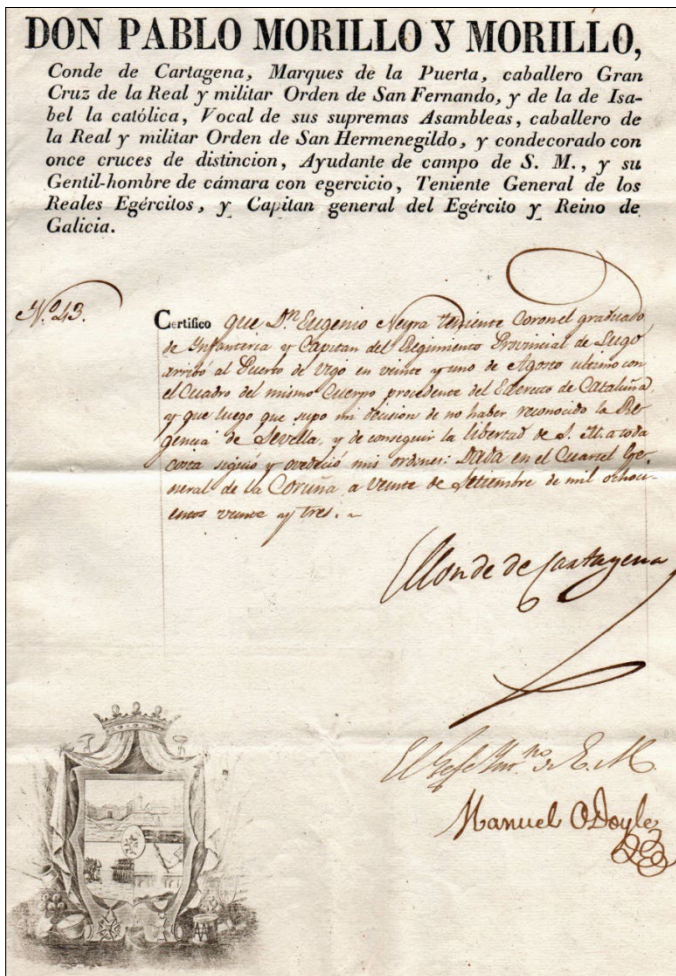 DON PABLO MORILLO Y MORILLO,
Conde de Cartagena, Marques de la Puerta, caballero Gran
Cruz de la Real y militar Orden de San Fernando, y de la de Isa-
bel la católica, Vocal de sus supremas Asambleas, caballero de
la Real y militar Orden de San Hermenegildo, y condecorado con
once cruces de distincion, Ayudante de campo de S. M., y su
Gentil-hombre de cámara con egercicio, Teniente General de los
Reales Egércitos, y Capitan general del Egército y Reino de
Galicia.
Nº 43.
Certifico que Dn Eugenio Neyra teniente Coronel graduado
de Ynfanteria y Capitan del Regimiento Provincial de Lugo
arrivó al Puerto de Vigo en veinte y uno de Agosto ultimo con
el Cuadro del mismo Cuerpo procedente del Egercito de Cataluña
y que luego que supo mi decision de no haber reconocido la Re-
gencia de Sevilla, y de conseguir la libertad de S. M. a toda
costa siguió y ovedeció mis ordenes: Dada en el Cuartel Ge-
neral de la Coruña a veinte de Setiembre de mil ochoci-
entos veinte y tres.
El Conde de Cartagena
El Gefe Ynt.no de E. M.
Manuel O Doyle